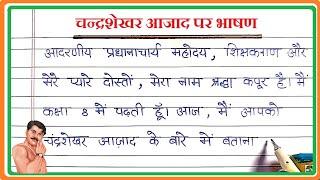 चन्द्रशेखर आजाद पर भाषण
आदरणीय प्रधानाचार्य महोदय, शिक्षकगण और
मेरे प्यारे दोस्तों, मेरा नाम श्रद्धा कपूर है। मैं
कक्षा 8 में पढ़ती हूँ। आज, मैं आपको
चंद्रशेखर आज़ाद के बारे में बताना